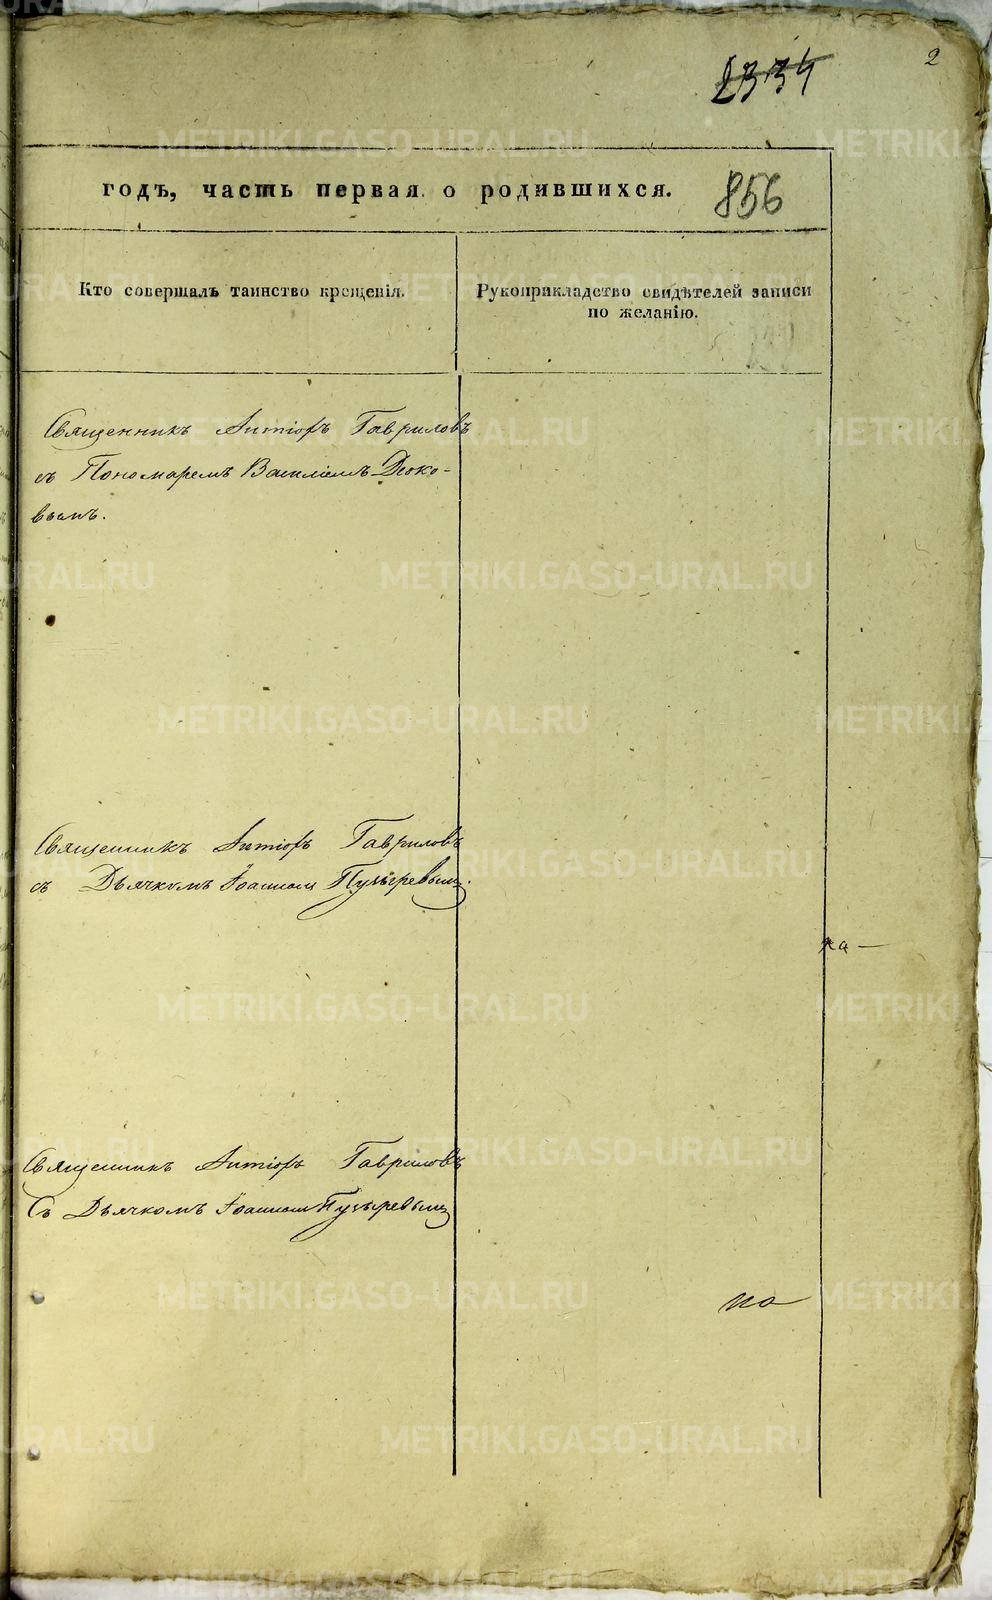 2
2334
годъ, часть первая о родившихся.
856
Кто совершалъ таинство крещенія.
Рукоприкладство свидѣтелей записи
по желанію.
Священникъ Антіоръ Гавриловъ
съ Пономаремъ Василіемъ Дюко-
вымъ.
Священникъ Антіоръ Гавриловъ
съ Дьячкомъ Іоанномъ Пузыревымъ.
на —
Священникъ Антіоръ Гавриловъ
Съ Дьячкомъ Іоанномъ Пузыревымъ
на
METRIKI.GASO-URAL.RU